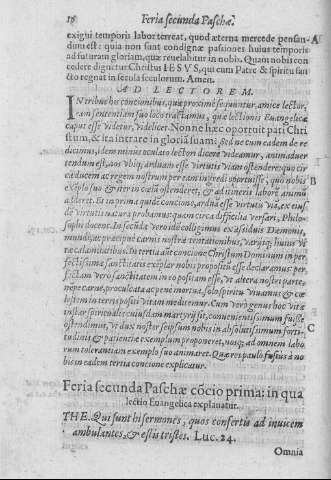 18 Feria secunda Paschæ.
exigui temporis labor terreat, quod æterna mercede pensan-
dum est: quia non sunt condignæ passiones huius temporis
ad futuram gloriam, quæ reuelabitur in nobis. Quam nobis con
cedere dignetur Christus IESVS, qui cum Patre & spiritu san
cto regnat in secula seculorum. Amen.
AD LECTOREM.
IN tribus his concionibus, quæ proximè sequuntur, amice lector,
eam sententiam suo loco tractamus, quæ lectionis Euangelicæ
caput esse videtur, videlicet. Nonne hæc oportuit pati Chri
stum, & ita intrare in gloriã suam: sed ne cum eadem de re
dicimus, idem minùs oculato lectori dicere videamur, animaduer
tendum est, nos vbiq; arduam esse virtutis viam ostendere: quo cir
ca ducem ac regem nostrum per eam ingredi oportuisse, quo nobis
exẽplo suo & iter in cœlũ ostenderet, & ad itineris laborẽ animũ
adderet. Et in prima quidẽ concione, arduã esse virtutis viã, ex eius
dẽ virtutis natura probamus: quam circa difficilia versari, Philo-
sophi docent. In secũda verò idẽ colligimus ex assiduis Dæmonis,
mundi, ac præcipuè carnis nostrã tentationibus, varijsq; huius vi
tæ calamitatibus. In tertia aũt concione Christum Dominum in per
fectissima sanctitatis exẽplar nobis propositũ esse declaramus: per
fectam verò sanctitatem in eo positam esse, vt altera nostri parte,
nẽpe carne, procul acta ac penè mortua, solo spiritu viuamus & cœ
lestem in terris positi vitam meditemur. Cum verò genus hoc vitæ
instar spiritualis cuiusdam martyrij sit, conuenientissimum fuisse
ostendimus, vt dux noster seipsum nobis in absolutissimum forti-
tudinis & patientiæ exemplum proponeret, nosq; ad omnem labo
rum tolerantiam exemplo suo animaret. Quæ res paulò fusius à no
bis in eadem tertia concione explicatur.
Feria secunda Paschæ cõcio prima: in qua
lectio Euangelica explanatur.
THE. Qui sunt hi sermones, quos confertis ad inuicem
ambulantes, & estis tristes. Luc. 24.
Omnia
A
B
C